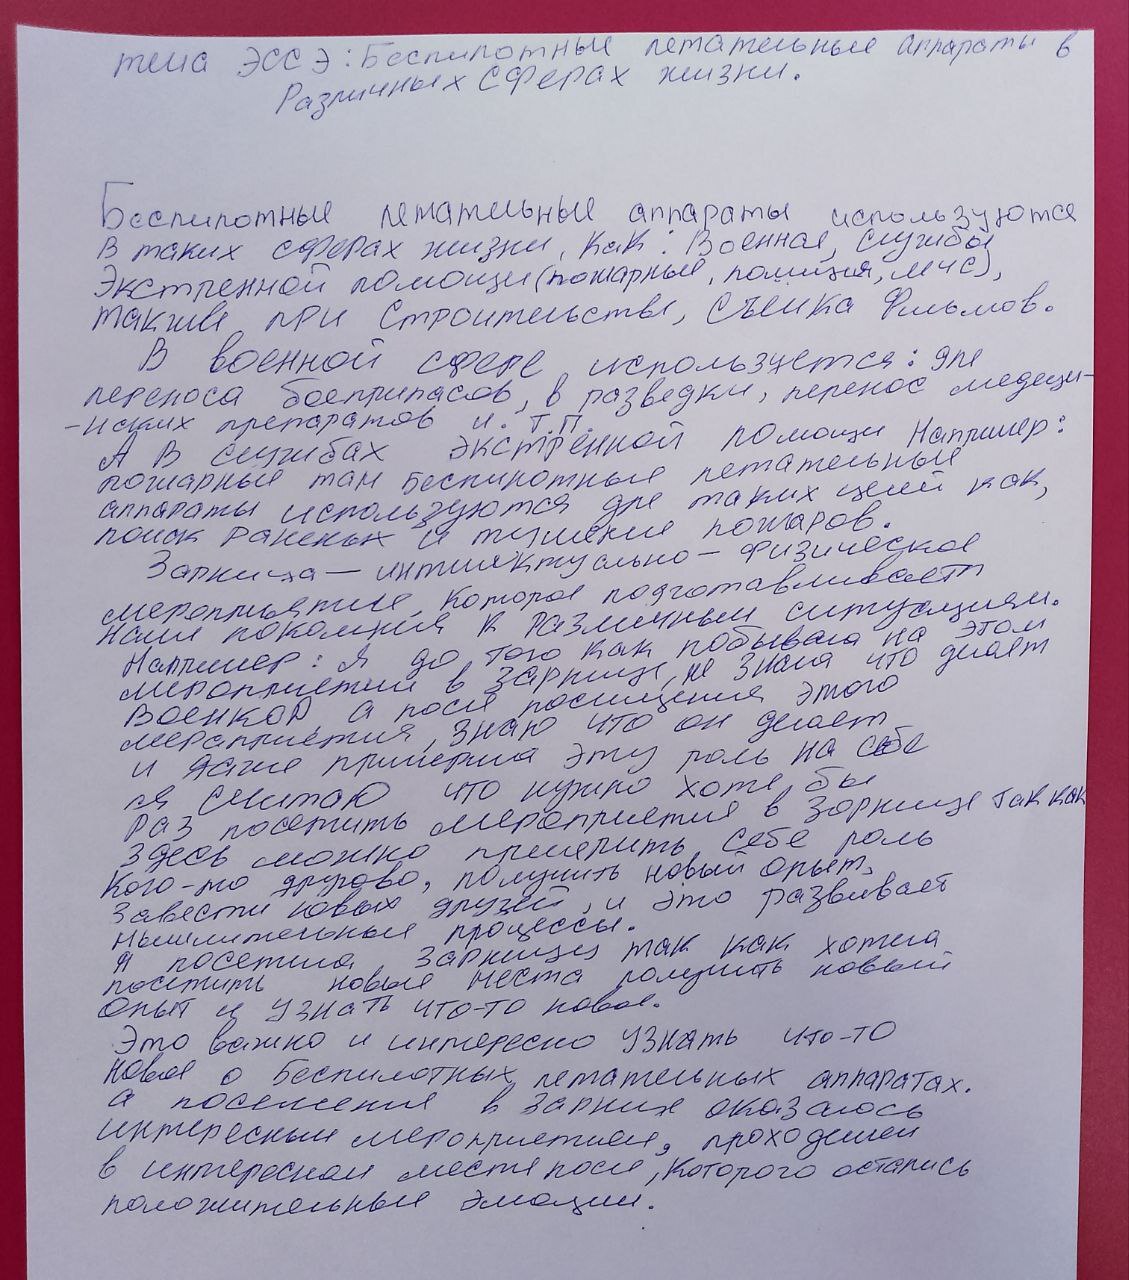 тема ЭССЭ: Беспилотные летательные аппараты в
Различных сферах жизни.
Беспилотные летательные аппараты используются
в таких сферах жизни, как: Военная, службы
Экстренной помощи (пожарные, полиция, МЧС),
также при Строительствы, Съемка Фильмов.
В военной сфере используется: для
переноса боеприпасов, в разведки, перенос медеци-
-нских препаратов и. Т.П.
А В службах экстренной помощи Например:
пожарные там беспилотные летательные
аппараты используются для таких целей как,
поиск раненых и тушение пожаров.
Зарница — интилектуально – физическое
мероприятие, которое подготавливает
наше поколция к различным ситуациям.
Например: я до того как побывала на этом
мероприятии в Зарнице, не знала что делает
ВОЕНКОР, а после посищения этого
мераприятия, знаю что он делает
и даже примерила эту роль на себе
я Считаю что нужно хотя бы
раз посетить мероприятия в Зарнице так как
здесь можно примерить себе роль
кого-то другово, получить новый опыт,
завести новых друзей, и это развивает
мышлительные процессы.
Я посетила Зарницу так как хотела
посетить новые места получить новый
опыт и узнать что-то новое.
Это важно и интересно узнать что-то
новое о беспилотных летательных аппаратах.
а посещение в Зарнице оказалось
интересным мероприятием, проходящем
в интересном месте после, которого остались
положительные эмоции.